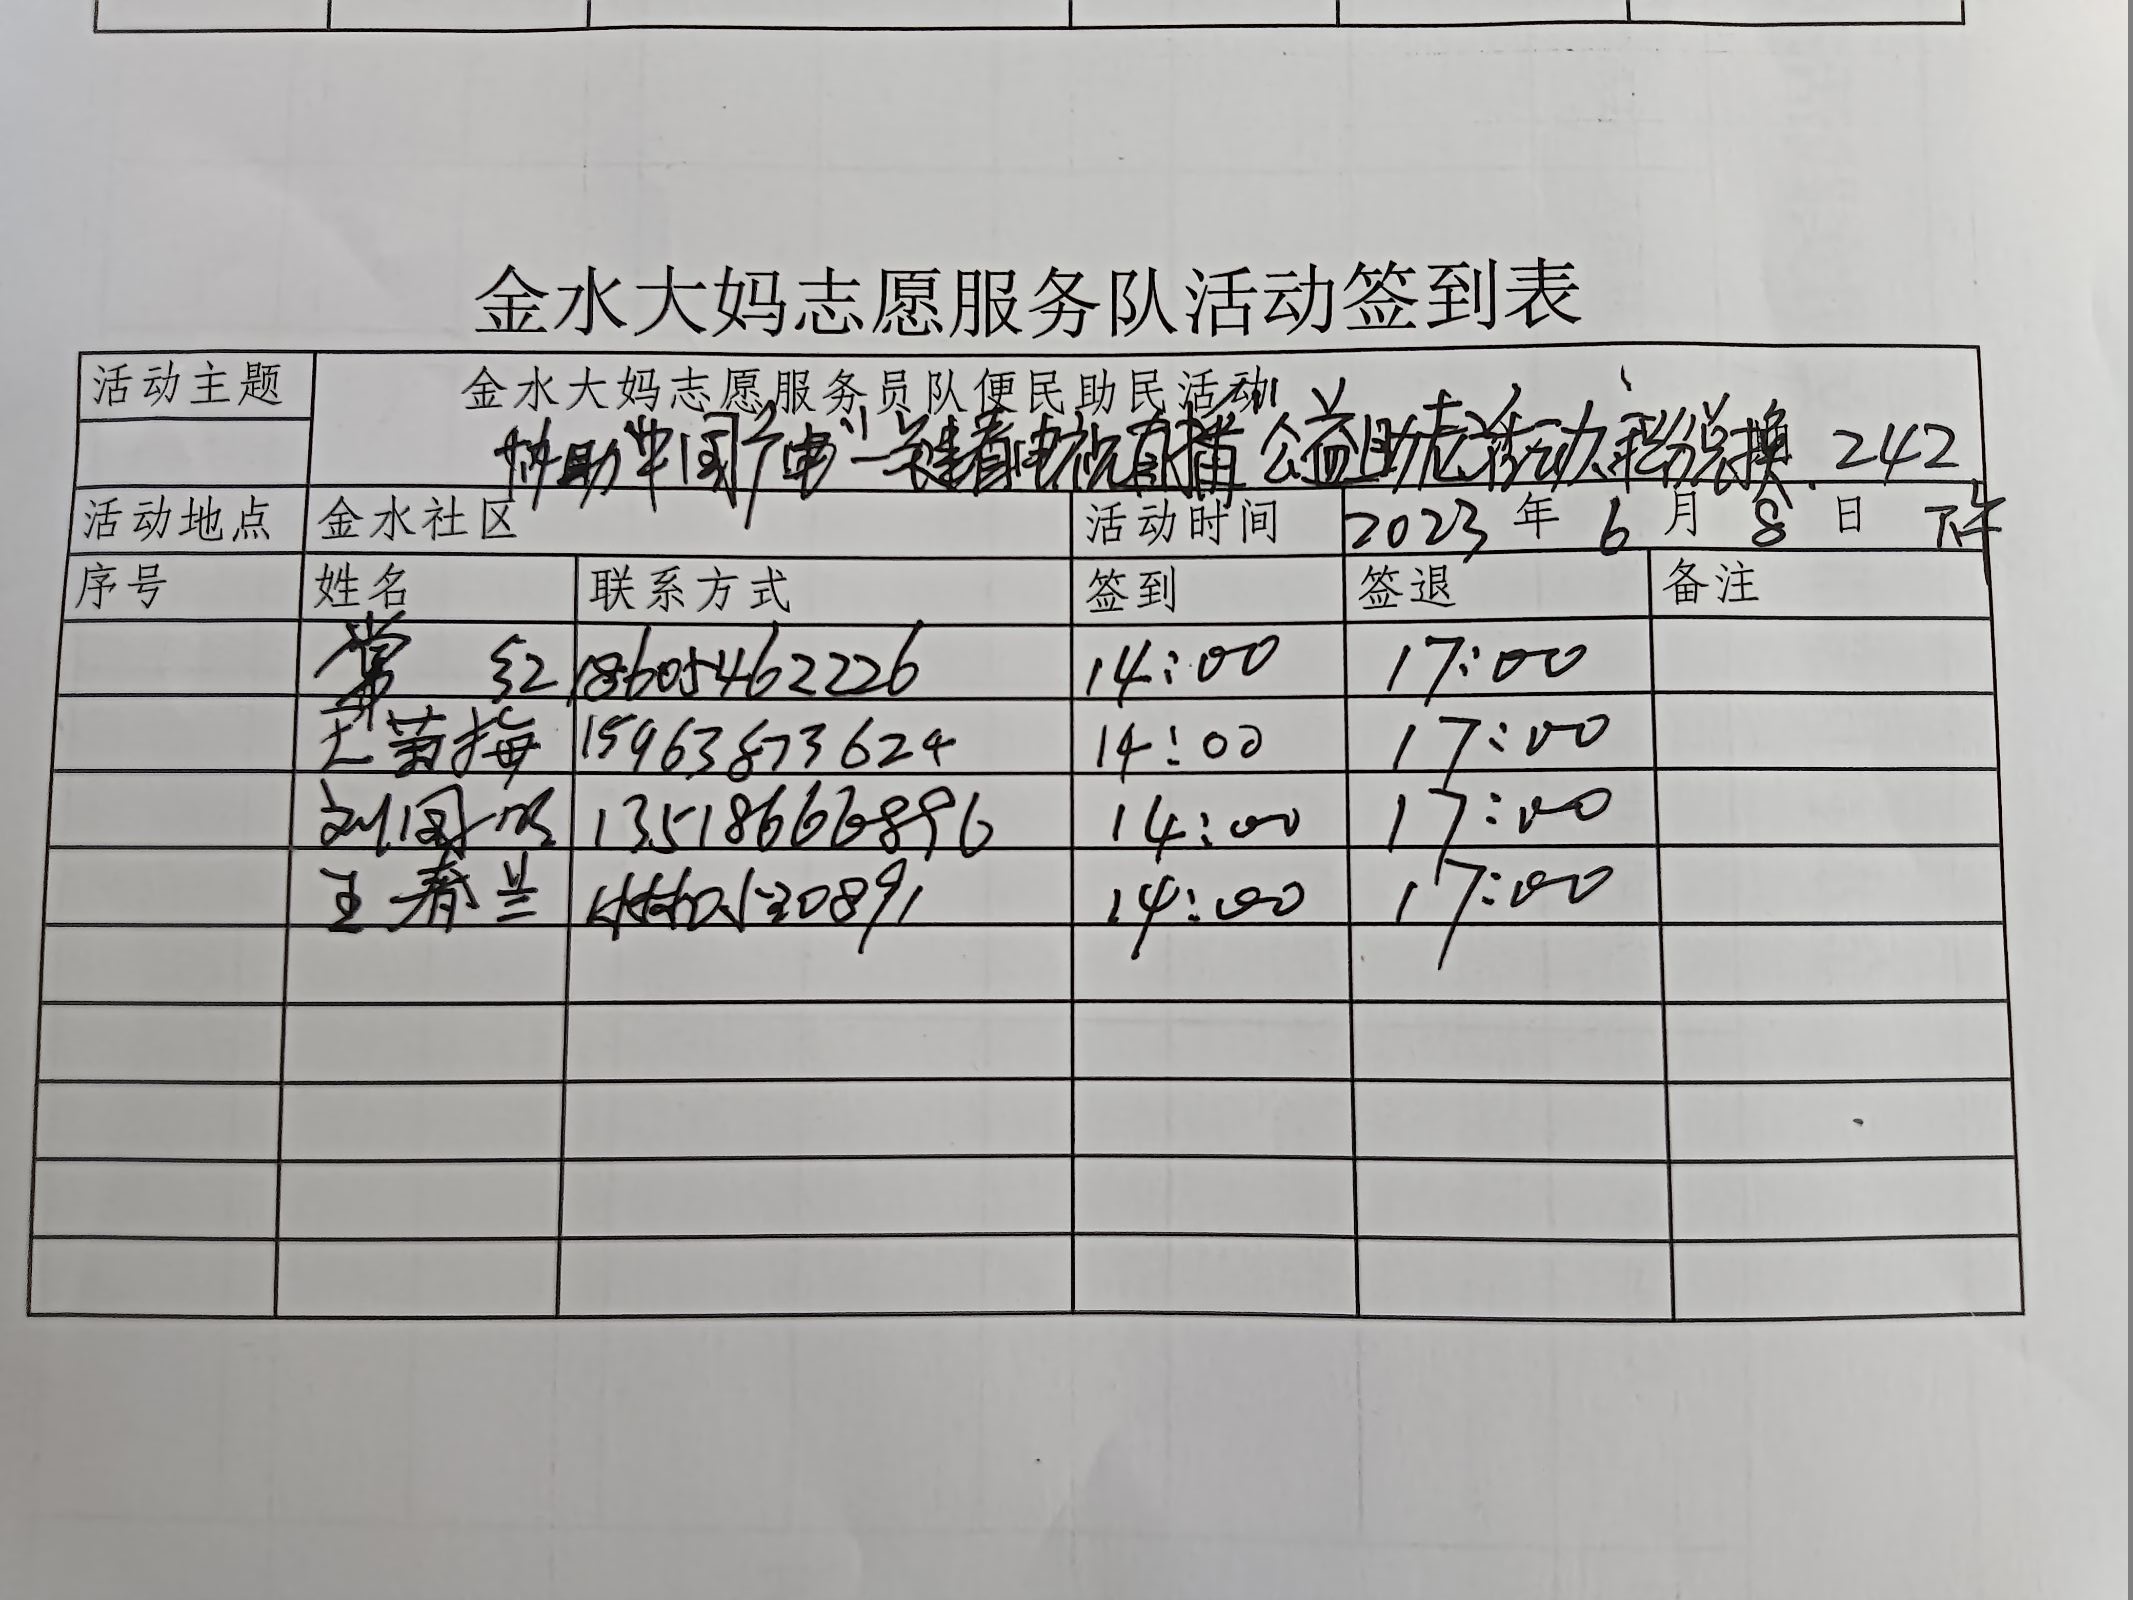 金水大妈志愿服务队活动签到表
活动主题 金水大妈志愿服务员队便民助民活动
协助“中国广电”一关键看电视直播 公益助老活动、积分兑换.242
活动地点 金水社区 活动时间 2023年6月8日 下午
序号 姓名 联系方式 签到 签退 备注
常红 18605462226 14:00 17:00
尤菊梅 15963873624 14:00 17:00
刘国 13518666896 14:00 17:00
王春兰 14:00 17:00